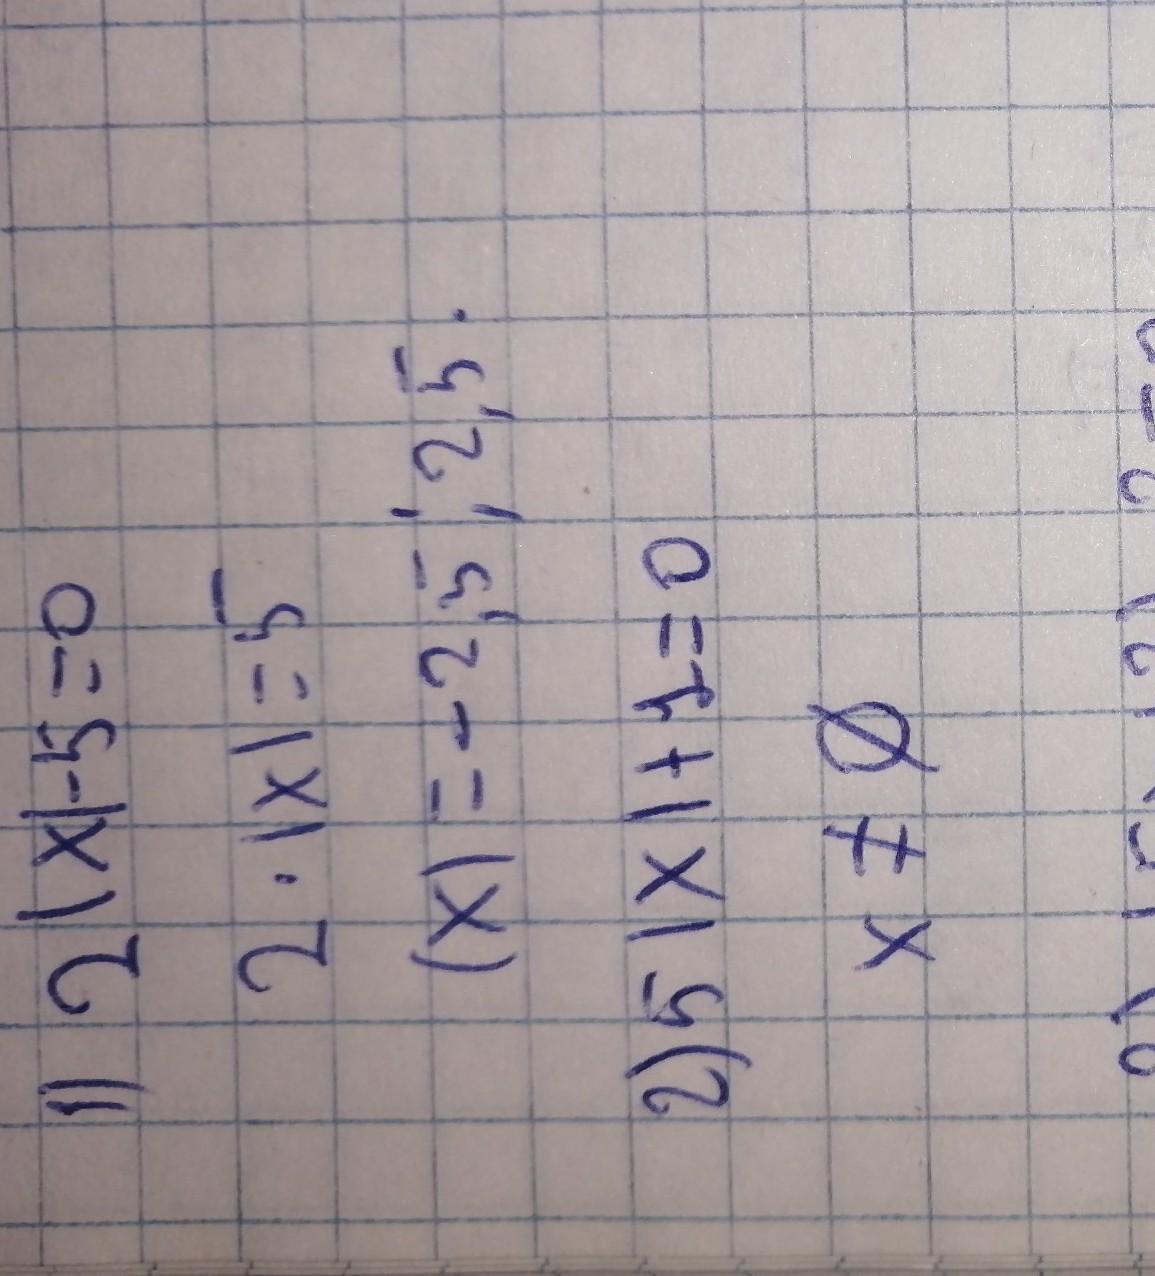 1) 2|x|-5=0
2·|x|=5
(x)=-2,5; 2,5.
2) 5|x|+1=0
x ≠ Ø